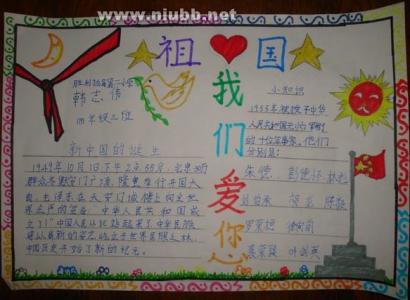 www.niubb.net
祖❤国
我们爱你
韩志伟
四年级三班
新中国的诞生
1949年10月1日下午2点55分,北京30万
群众齐聚天安门广场,隆重举行开国大
典,毛泽东在天安门城楼上向全世
界庄严的宣告:中华人民共和国成
立了!中国人民从此站起来了,中华民族
将以崭新的姿态屹立于世界民族之林,
中国历史开始了新的纪元。
小知识
1955年被授予中华
人民共和国元帅军衔
的十位军事家。他们
分别是:
朱德 彭德怀 林彪
刘伯承 贺龙 陈毅
罗荣桓 徐向前
聂荣臻 叶剑英